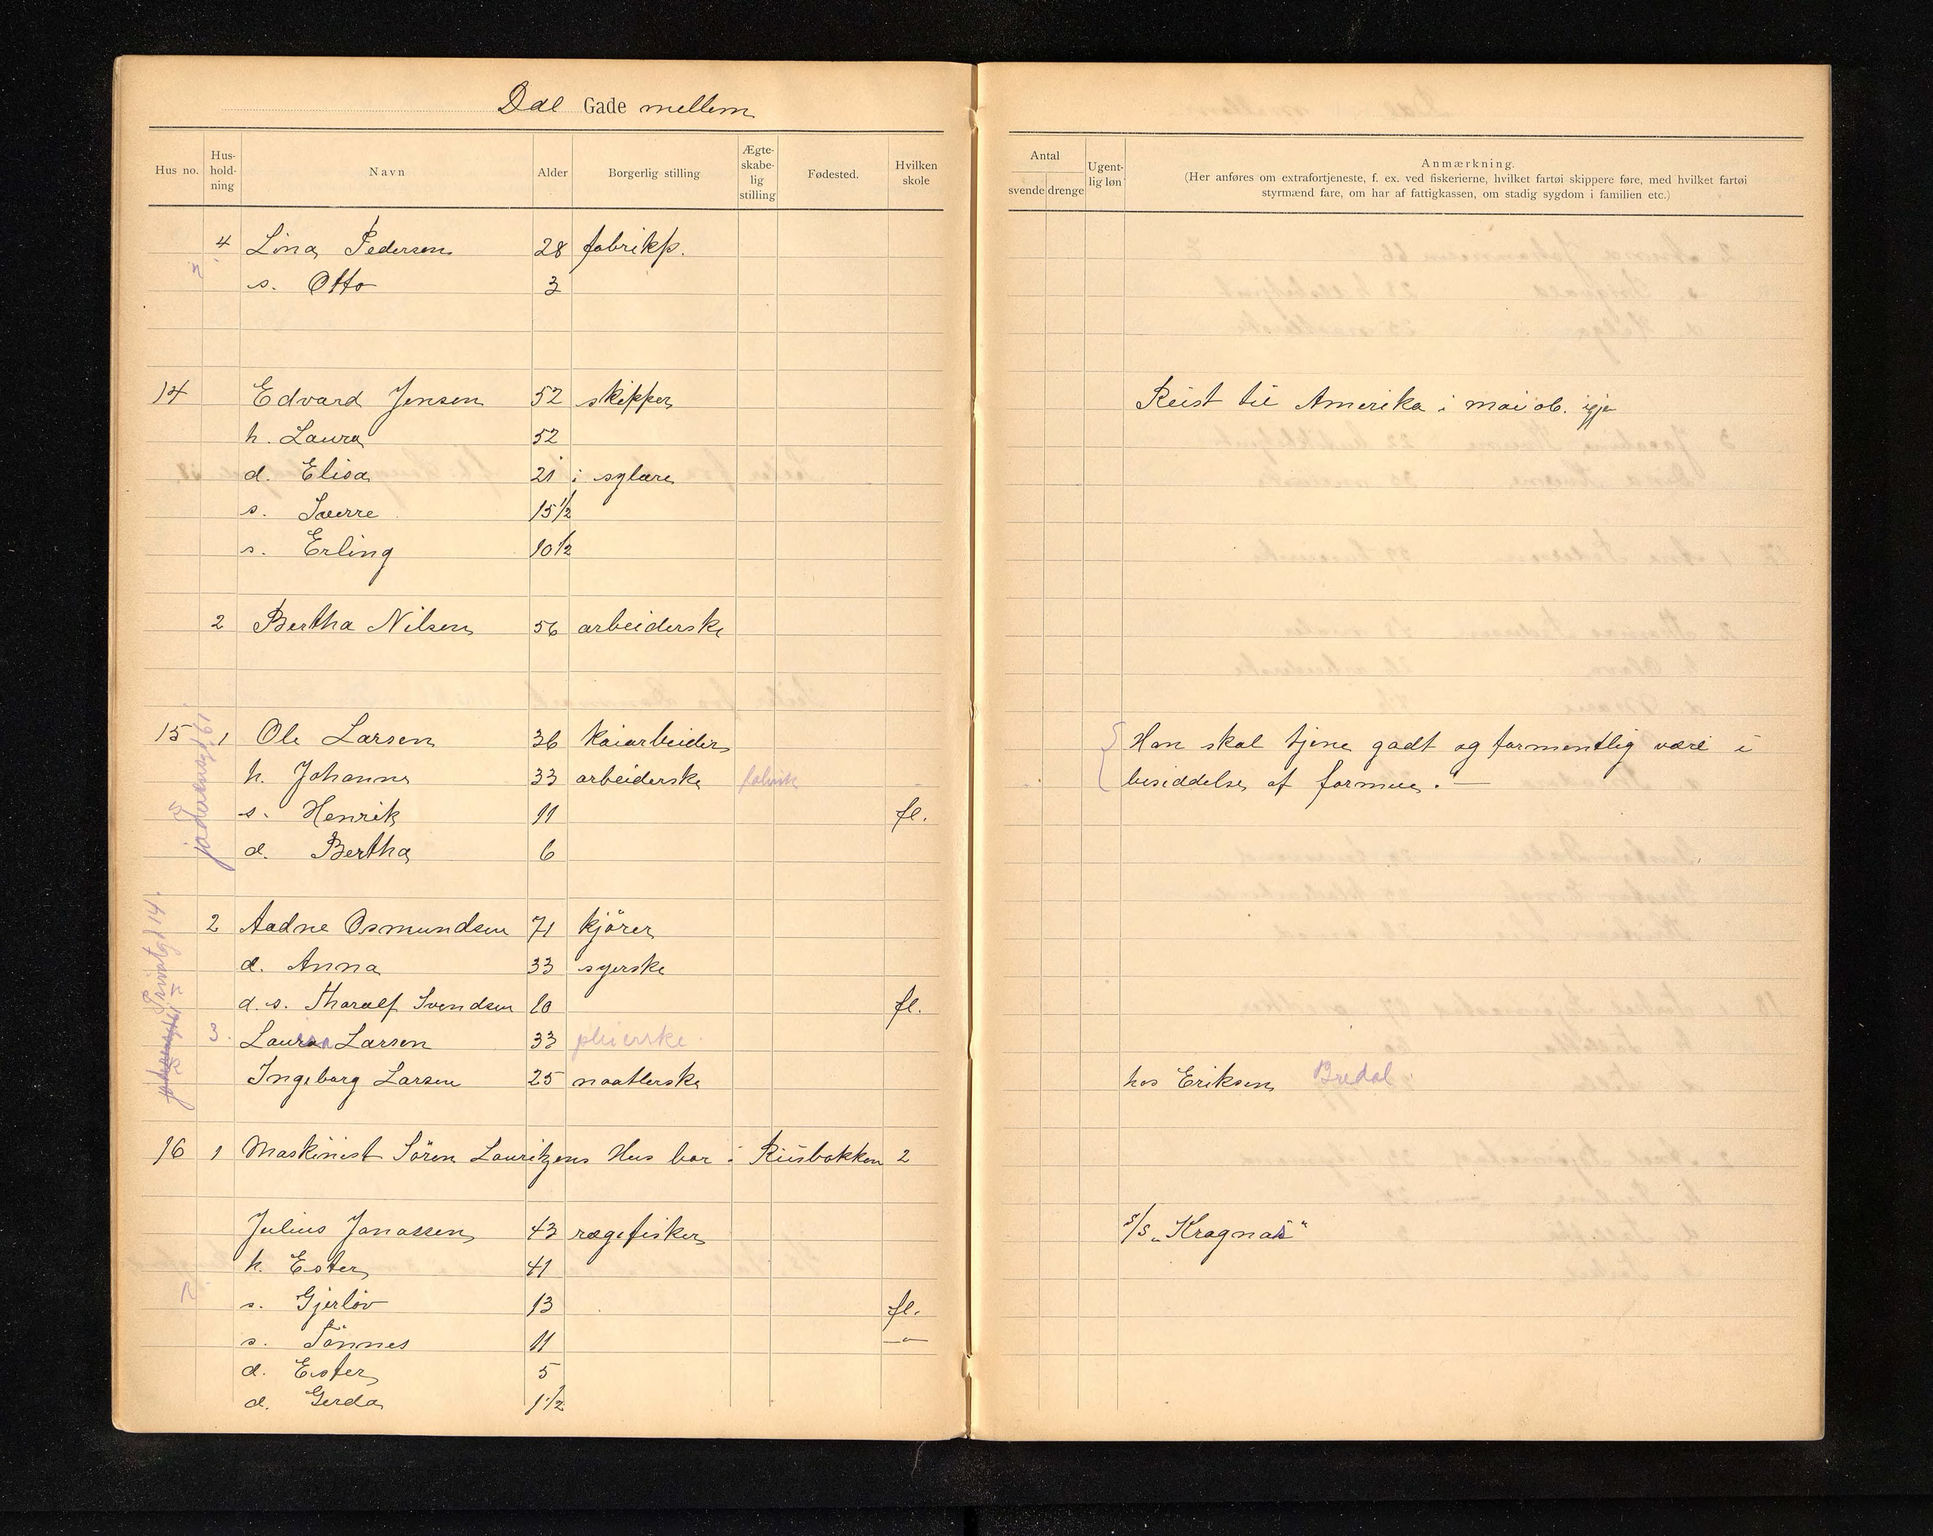 Dal Gade mellem
Hus no. Hus-hold-ning Navn Alder Borgerlig stilling Ægte-skabe-lig stilling Fødested. Hvilken skole
Antal svende drenge Ugent-lig løn Anmærkning.
(Her anføres om extrafortjeneste, f. ex. ved fiskerierne, hvilket fartøi skippere føre, med hvilket fartøi
styrmænd fare, om har af fattigkassen, om stadig sygdom i familien etc.)
4 Lina Pedersen 28 fabrikp.
s. Otto 3
14 Edvard Jensen 52 skipper Reist til Amerika i mai
h. Laura 52
d. Elisa 21 i sylære
s. Sverre 15 1/2
s. Erling 10 1/2
2 Bertha Nilsen 56 arbeiderske
15 1 Ole Larsen 36 kaiarbeider Han skal tjene godt og formentlig være i
h. Johanne 33 arbeiderske fabrik besiddelse af formue. —
s. Henrik 11 fl.
d. Bertha 6
2 Aadne Osmundsen 71 kjörer
d. Anna 33 syerske
d. s. Tharalf Svendsen 10 fl.
3 Larsen 33 pleierske
Ingeborg Larsen 25 naatlerske hos Eriksen Bredal
Privatgd 14
16 1 Maskinist Sören Lauritzens Hus bor i Riisbakken 2
Julius Jonassen 43 rægefisker s/s „Kragnæs"
h. Ester 41
s. Gjerlöv 13 fl.
s. Tönnes 11 —"—
d. Ester 5
d. Gerda 1 1/2